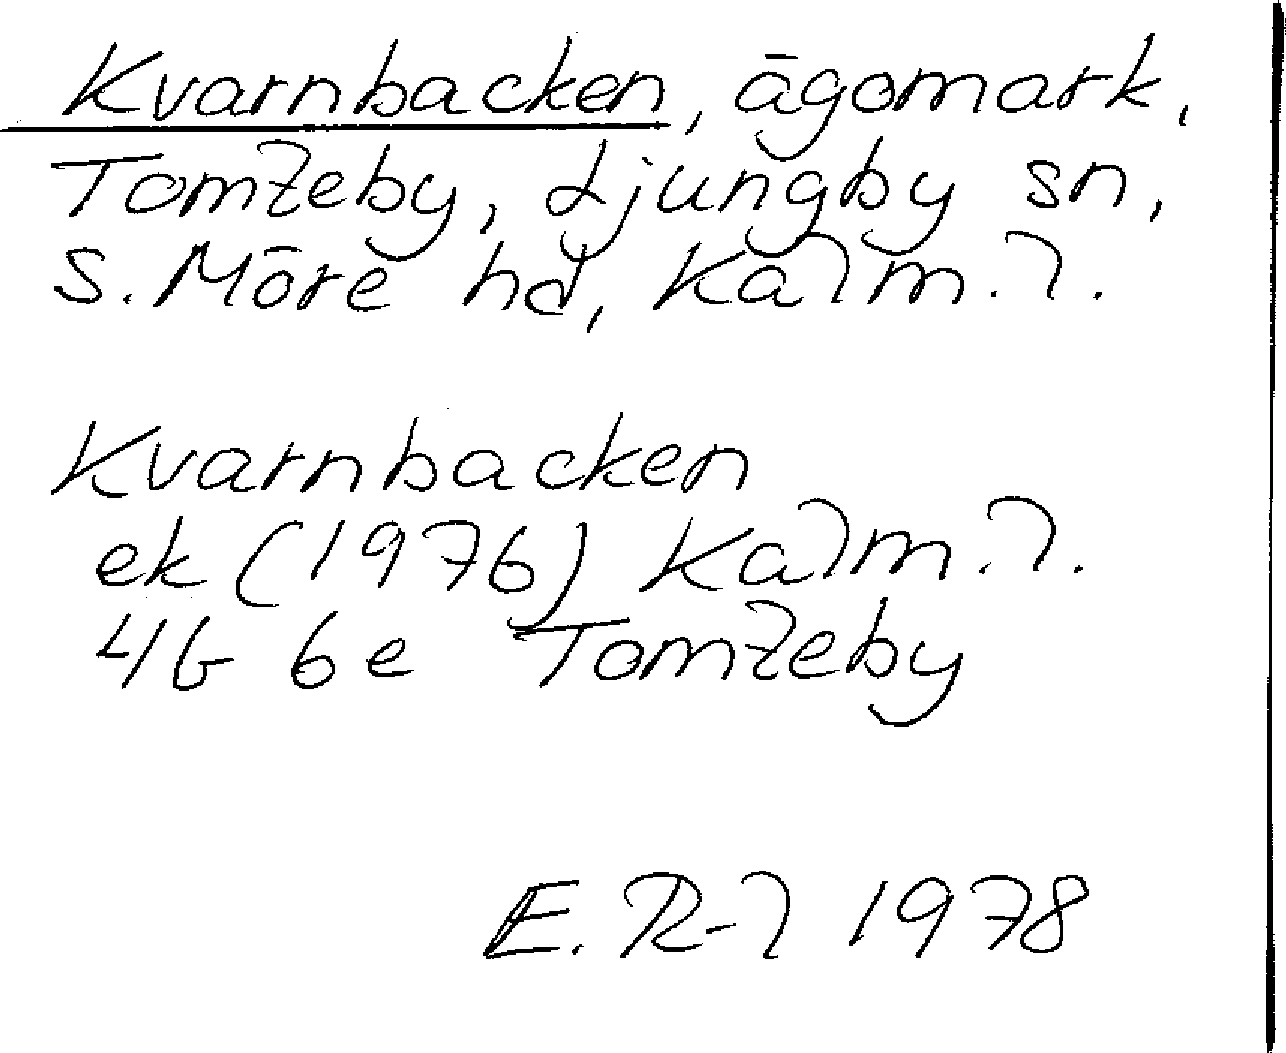 Kvarnbacken, ägomark,
Tomteby, Ljungby sn,
S. Möre hd, Kalm. l.
Kvarnbacken
ek (1976) Kalm. l.
4G 6e Tomteby
E. R-l 1978